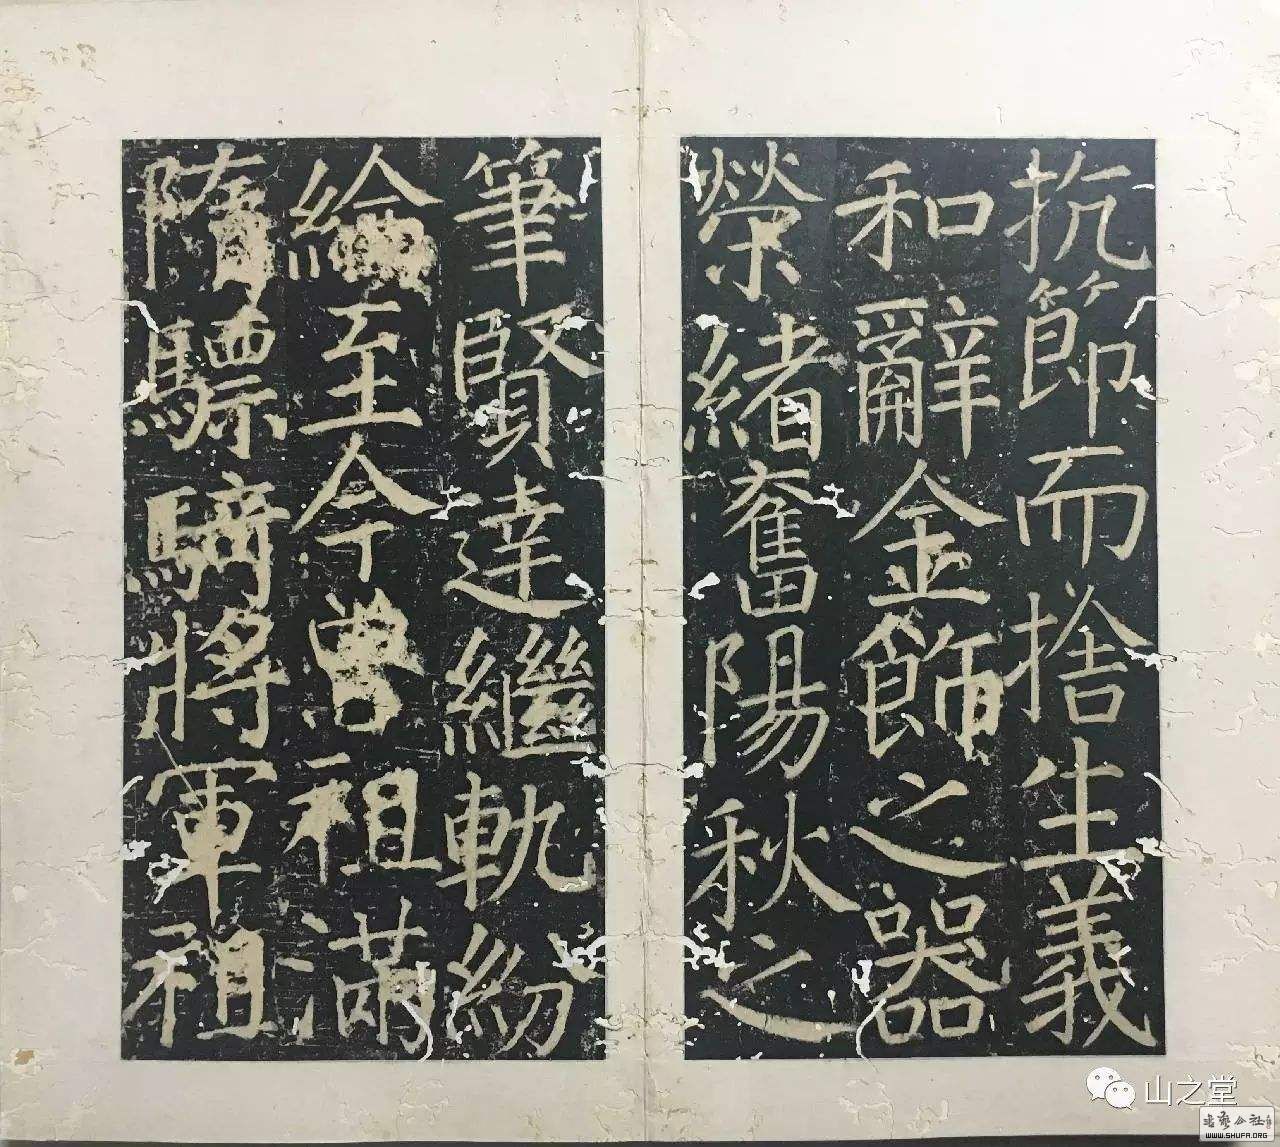 抗節而捨生義
和辭金飾之器
榮緒奮陽秋之
筆賢達繼軌紛
綸至今曾祖滿
隋驃騎將軍祖
山之堂
书艺公社
WWW.SHUFA.ORG